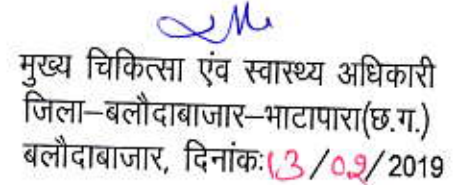 मुख्य चिकित्सा एंव स्वास्थ्य अधिकारी
जिला–बलौदाबाजार–भाटापारा(छ.ग.)
बलौदाबाजार, दिनांकः13/02/2019